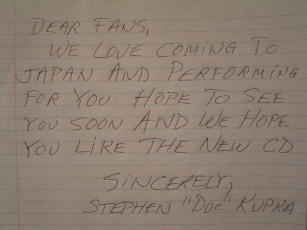 DEAR FANS,
WE LOVE COMING TO
JAPAN AND PERFORMING
FOR YOU. HOPE TO SEE
YOU SOON AND WE HOPE
YOU LIKE THE NEW CD
SINCERELY,
STEPHEN "DOC" KUPKA